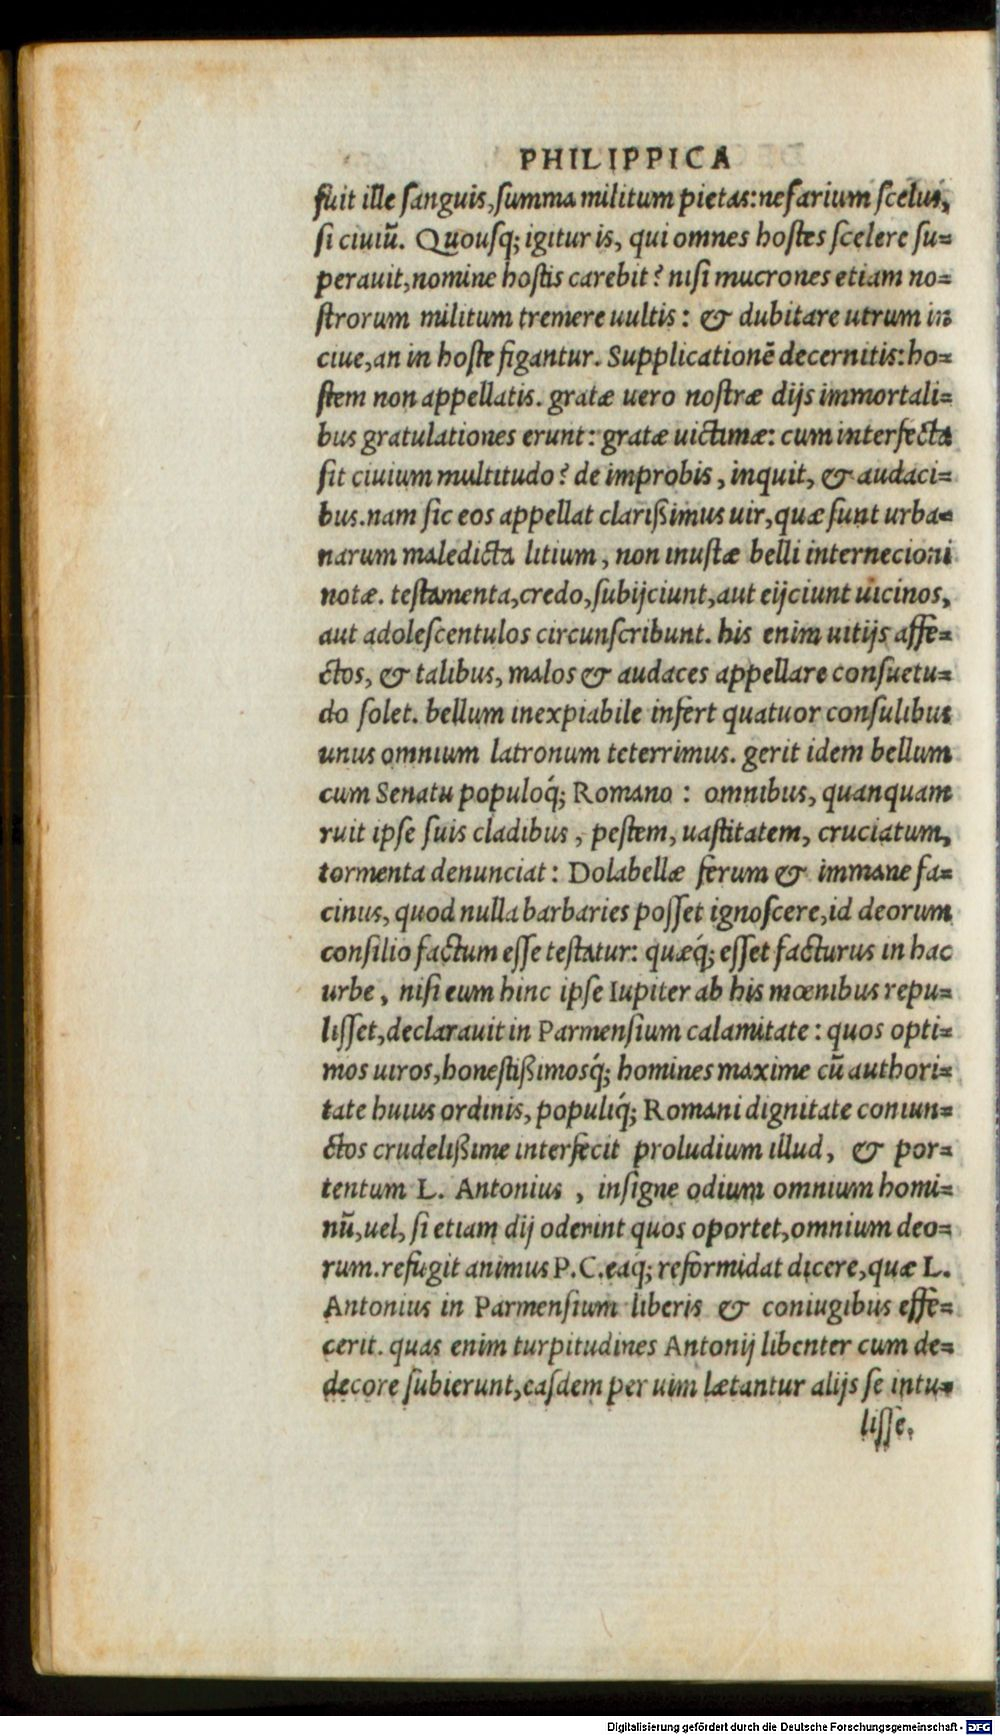 PHILIPPICA
fuit ille ſanguis,ſumma militum pietas:nefarium ſcelus,
ſi ciuiū. Quouſq; igitur is, qui omnes hoſtes ſcelere ſu=
perauit,nomine hoſtis carebit? niſi mucrones etiam no=
ſtrorum militum tremere uultis: & dubitare utrum in
ciue,an in hoſte figantur. Supplicationē decernitis:ho=
ſtem non appellatis. gratæ uero noſtræ dijs immortali=
bus gratulationes erunt: gratæ uictimæ: cum interfecta
ſit ciuium multitudo? de improbis, inquit, & audaci=
bus.nam ſic eos appellat clarißimus uir,quæ ſunt urba=
narum maledicta litium, non inuſtæ belli internecioni
notæ. teſtamenta,credo,ſubijciunt,aut eijciunt uicinos,
aut adoleſcentulos circunſcribunt. his enim uitijs affe=
ctos, & talibus, malos & audaces appellare conſuetu=
do ſolet. bellum inexpiabile infert quatuor conſulibus
unus omnium latronum teterrimus. gerit idem bellum
cum Senatu populoq́; Romano: omnibus, quanquam
ruit ipſe ſuis cladibus, peſtem, uaſtitatem, cruciatum,
tormenta denunciat: Dolabellæ ferum & immane fa=
cinus, quod nulla barbaries poſſet ignoſcere,id deorum
conſilio factum eſſe teſtatur: quæq́; eſſet facturus in hac
urbe, niſi eum hinc ipſe Iupiter ab his mœnibus repu=
liſſet,declarauit in Parmenſium calamitate: quos opti=
mos uiros,honeſtißimosq́; homines maxime cū authori=
tate huius ordinis, populiq́; Romani dignitate coniun=
ctos crudelißime interfecit proludium illud, & por=
tentum L. Antonius, inſigne odium omnium homi=
nū,uel, ſi etiam dij oderint quos oportet,omnium deo=
rum.refugit animus P.C.eaq; reformidat dicere,quæ L.
Antonius in Parmenſium liberis & coniugibus effe=
cerit. quas enim turpitudines Antonij libenter cum de=
decore ſubierunt,eaſdem per uim lætantur alijs ſe intu=
liſſe.
Digitalisierung gefördert durch die Deutsche Forschungsgemeinschaft - DFG